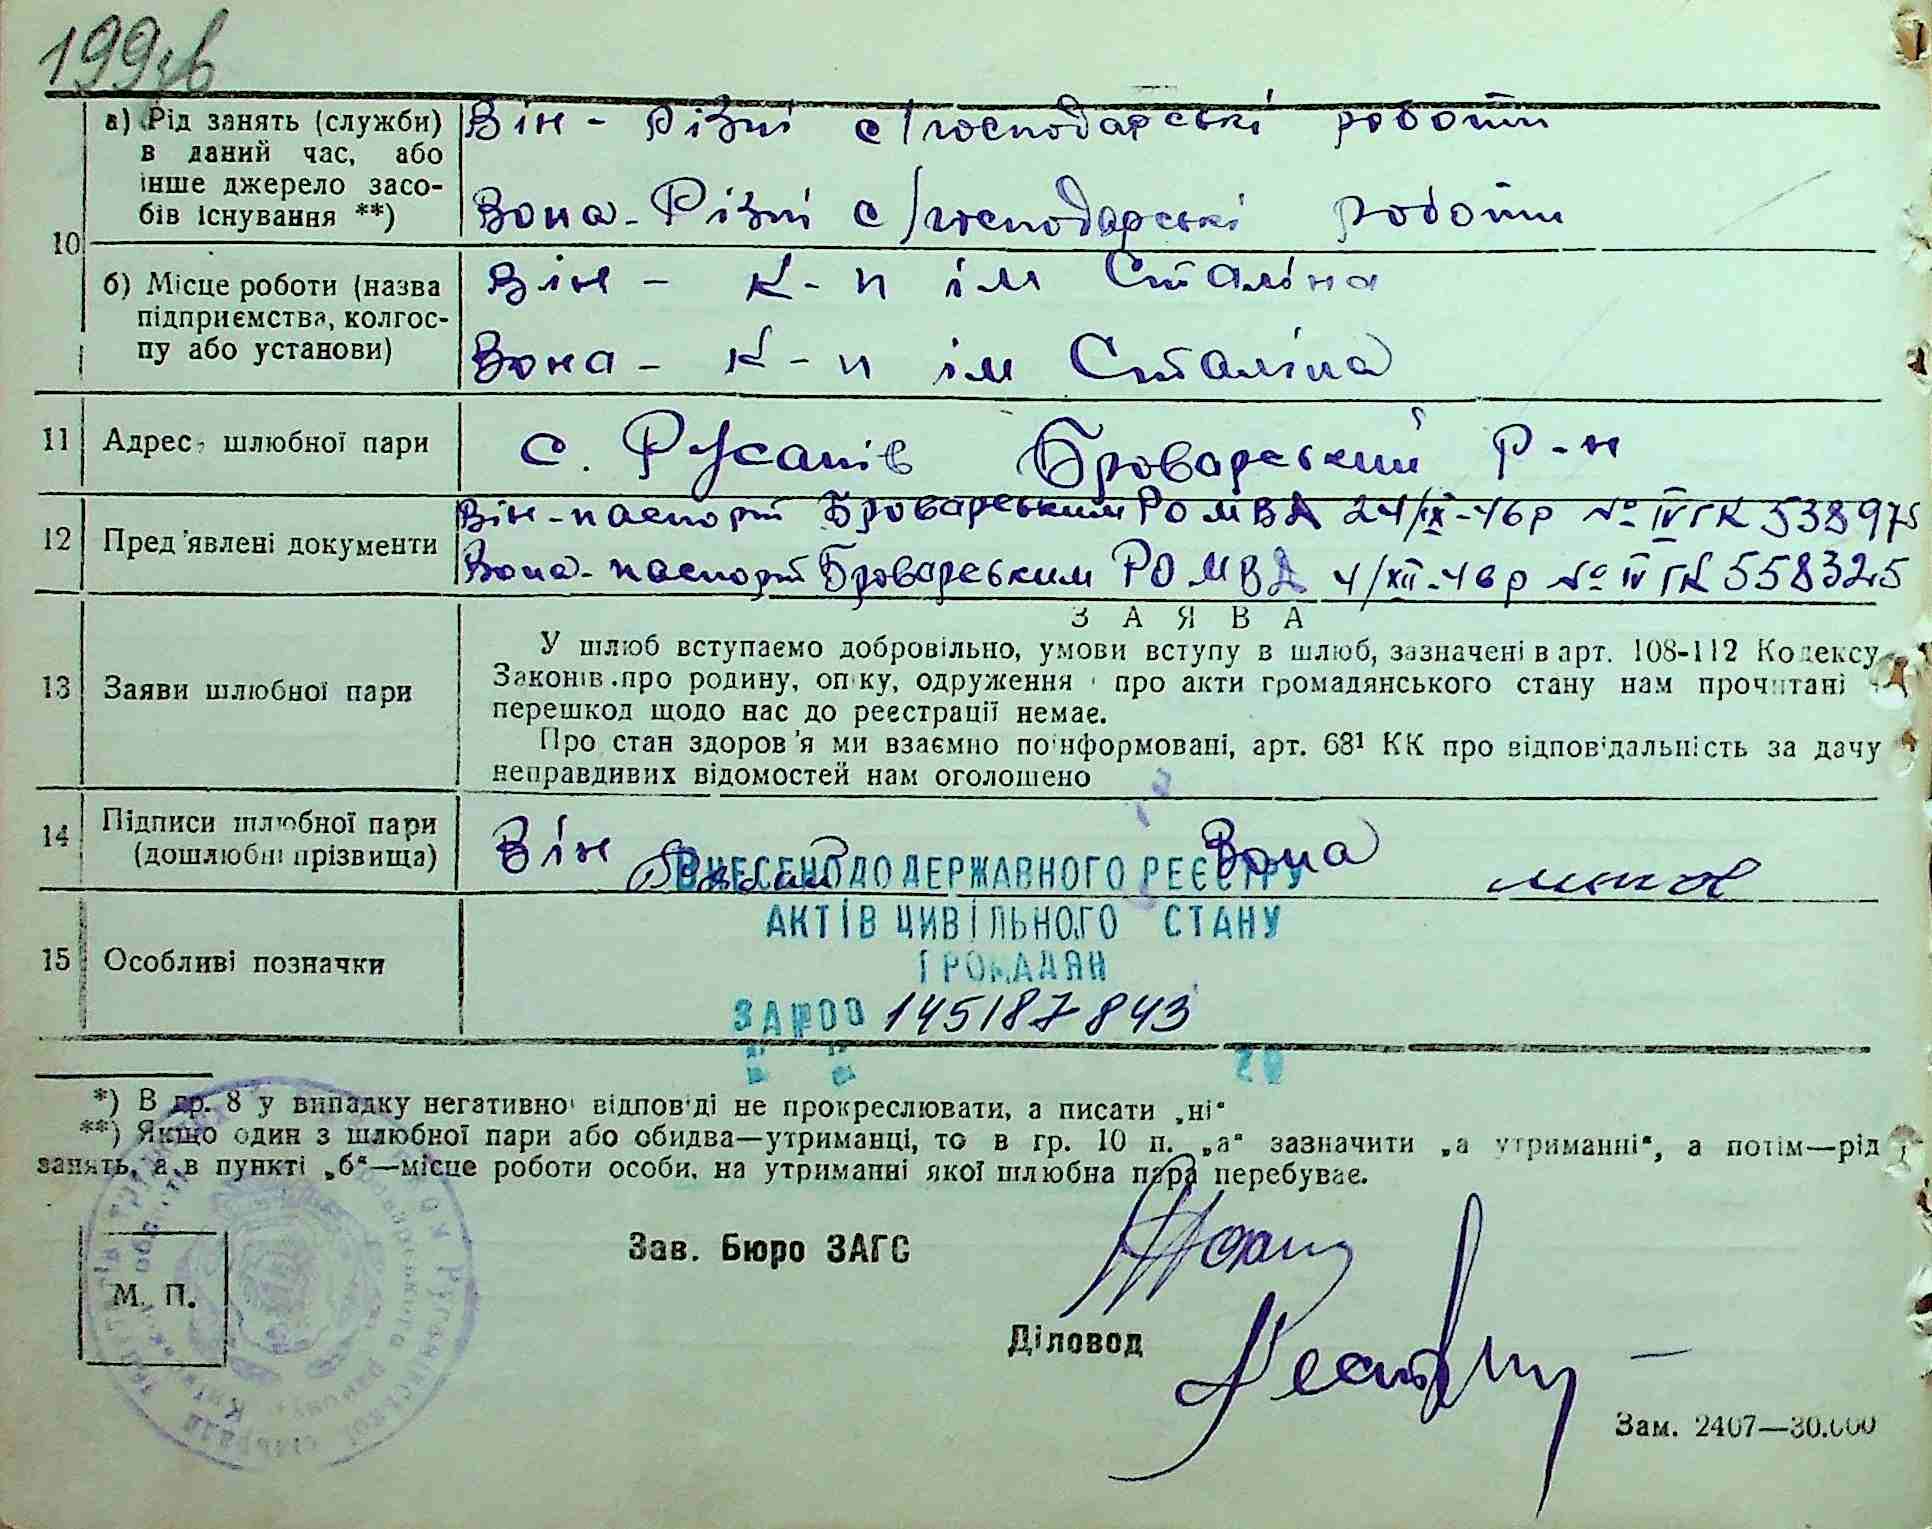 199зв
а) Рід занять (служби)
в даний час, або
інше джерело засо-
бів існування **)
Він - Різні с/господарські роботи
Вона - Різні с/господарські роботи
10
б) Місце роботи (назва
підприємства, колгос-
пу або установи)
Він - К-п ім Сталіна
Вона - К-п ім Сталіна
11 Адреса шлюбної пари
с. Русанів Броварський р-н
12 Пред'явлені документи
Він - паспорт Броварським РО МВД 24/IX-46р № IV ГК 538975
Вона - паспорт Броварським РО МВД 4/XII-46р № IV ГК 558325
ЗАЯВА
13 Заяви шлюбної пари
У шлюб вступаємо добровільно, умови вступу в шлюб, зазначені в арт. 108-112 Кодексу
Законів про родину, опіку, одруження і про акти громадянського стану нам прочитані і
перешкод щодо нас до реєстрації немає.
Про стан здоров'я ми взаємно поінформовані, арт. 68¹ КК про відповідальність за дачу
неправдивих відомостей нам оголошено
14 Підписи шлюбної пари
(дошлюбні прізвища)
Він Вона
ВНЕСЕНО ДО ДЕРЖАВНОГО РЕЄСТРУ
АКТІВ ЦИВІЛЬНОГО СТАНУ
ГРОМАДЯН
15 Особливі позначки
ЗА №00 145187843
20
*) В гр. 8 у випадку негативної відповіді не прокреслювати, а писати „ні“
**) Якщо один з шлюбної пари або обидва—утриманці, то в гр. 10 п. „а“ зазначити „а утриманні“, а потім—рід
занять, а в пункті „б“—місце роботи особи, на утриманні якої шлюбна пара перебуває.
Зав. Бюро ЗАГС
М. П.
Діловод
Зам. 2407—30.000